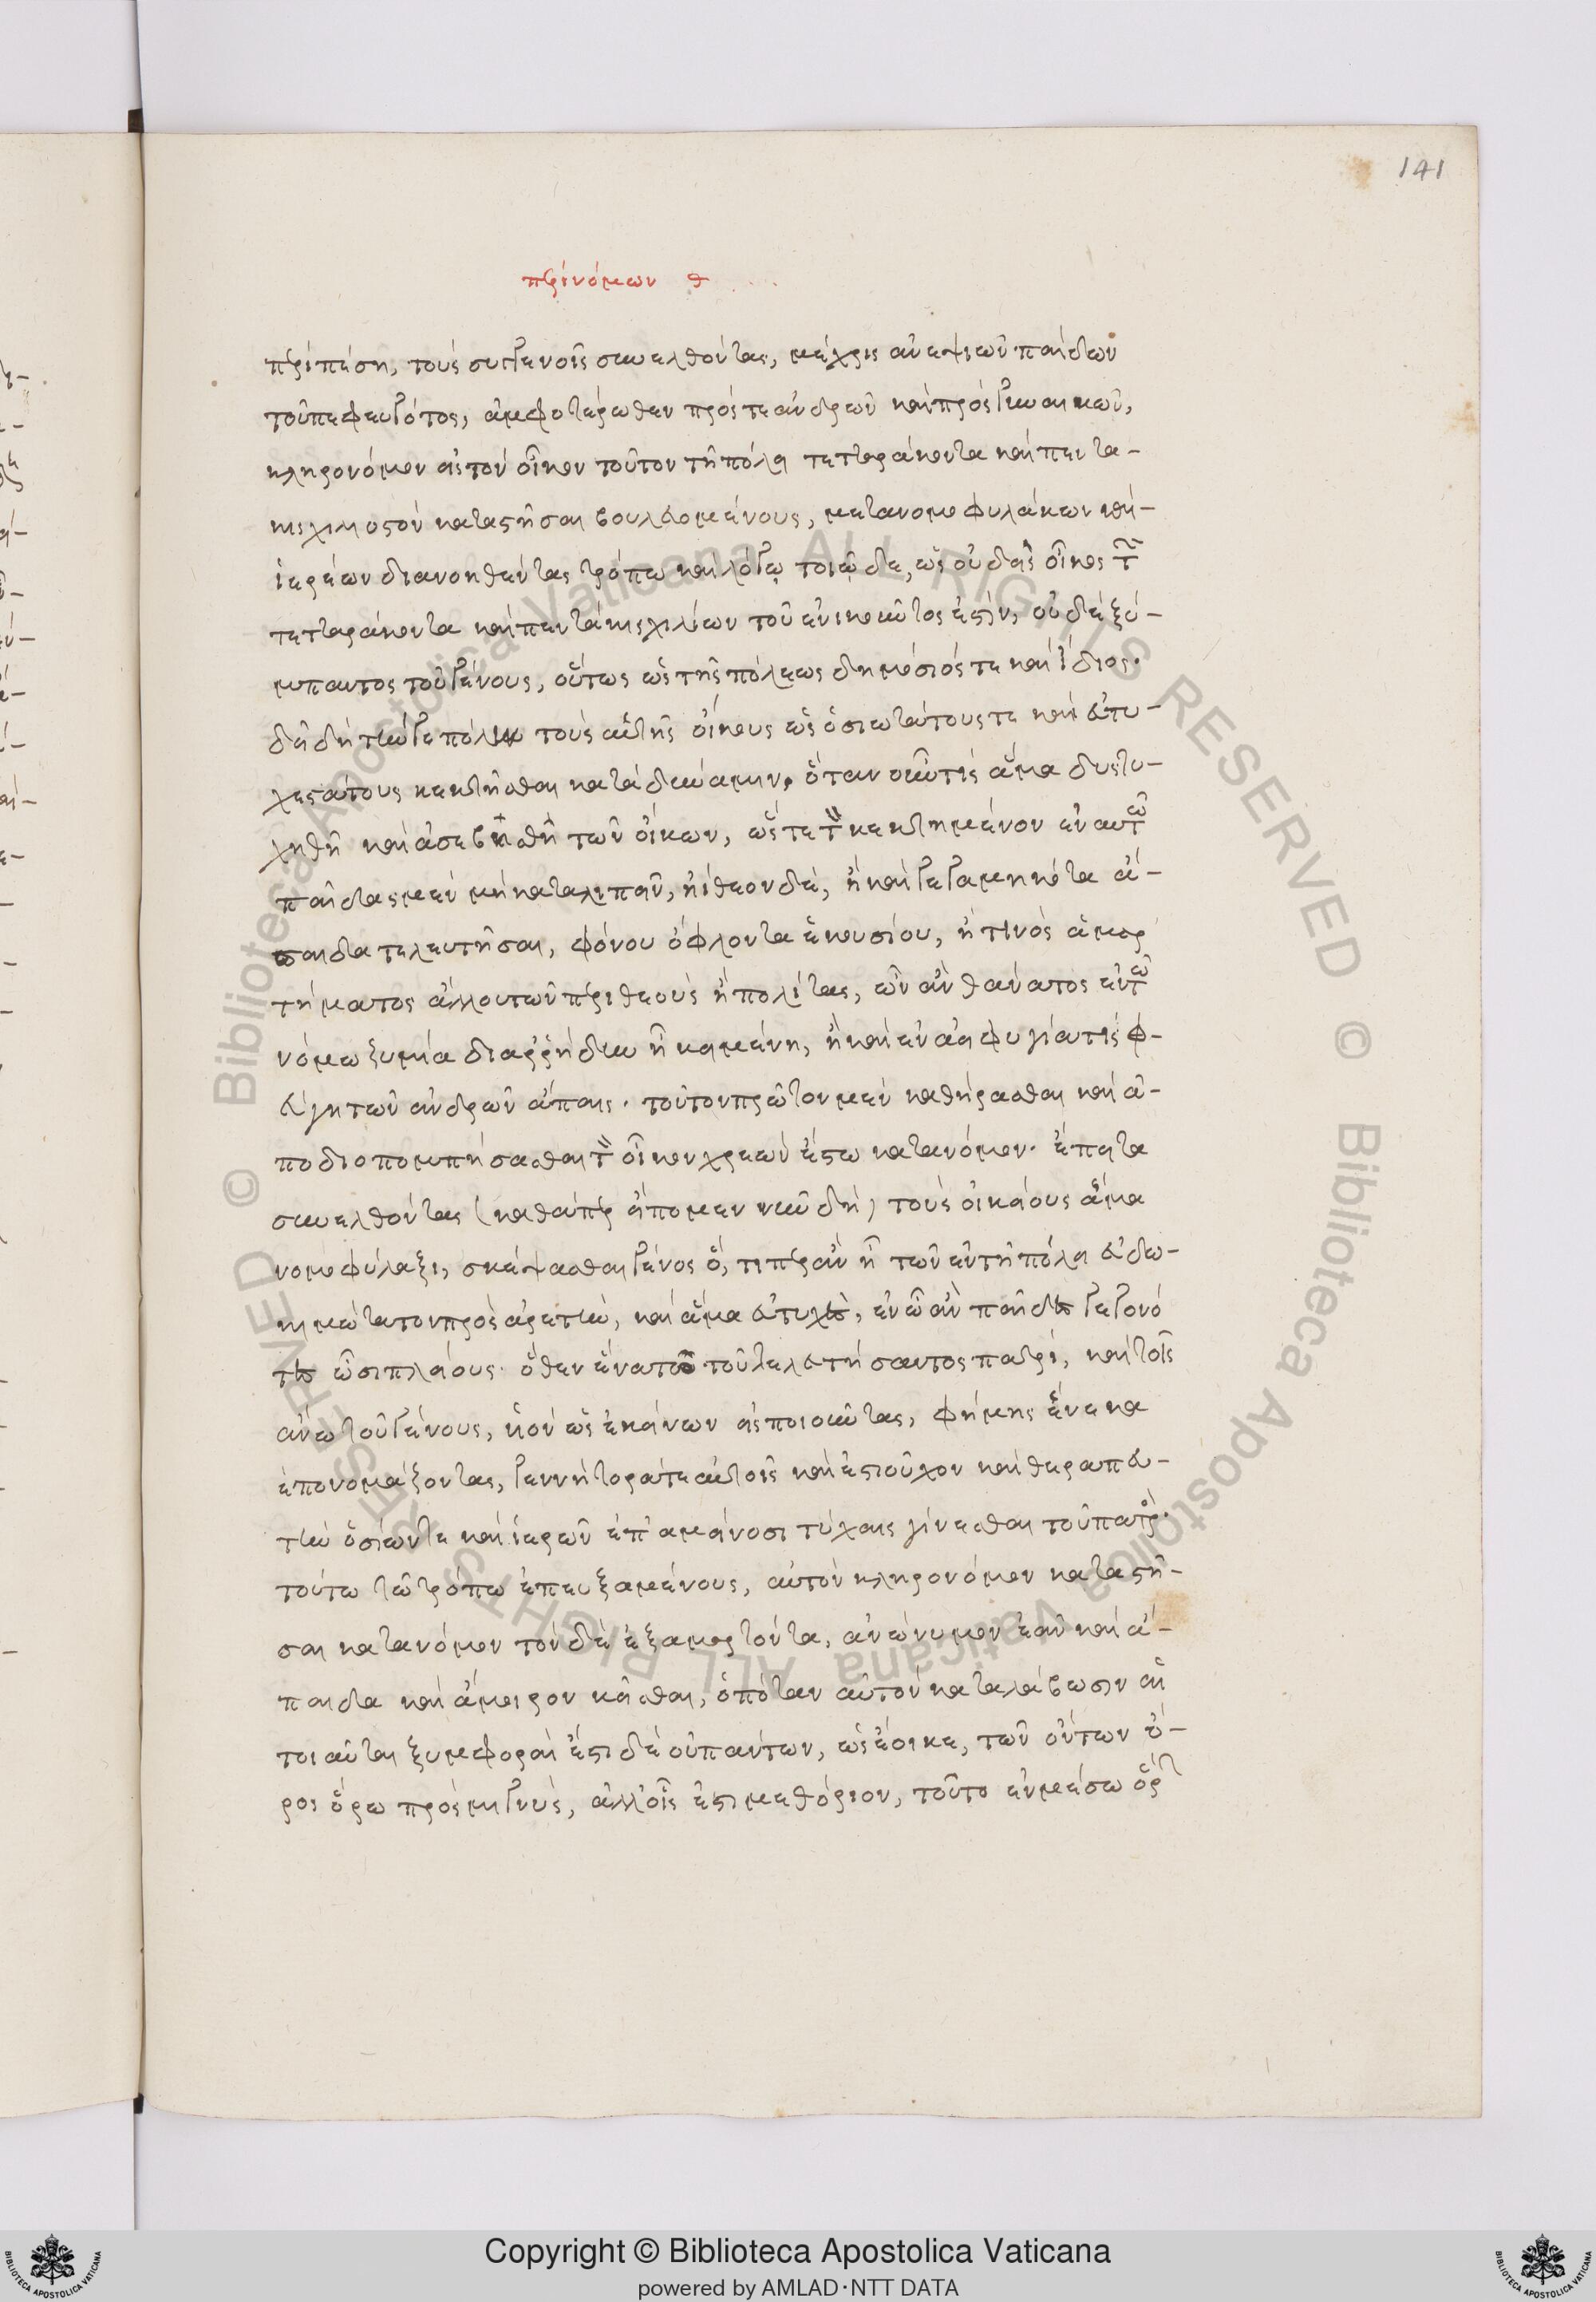 141
περὶ νόμων θ
περιπέση, τοὺς συγγενοῖς συνελθόντας, μέχρις ἀνεψιῶν παίδων
τοῦ πεφευγότος, ἀμφοτέρωθεν πρός τε ἀνδρῶν καὶ πρὸς γυναικῶν,
κληρονόμον εἰς τὸν οἶκον τοῦτον τῆ πόλει τετταράκοντα καὶ πεντα-
κισχιλιοστὸν καταστῆσαι βουλευομένους, μετὰ νομοφυλάκων καὶ
ἱερέων διανοηθέντας τρόπω καὶ λόγῳ τοιῷδε, ὡς οὐδεὶς οἶκος τῶν
τετταράκοντα καὶ πεντάκισχιλίων τοῦ ἐνοικοῦντος ἐστὶν, οὐδὲ ξύ-
μπαντος τοῦ γένους, οὕτως ὡς τῆς πόλεως δημόσιός τε καὶ ἴδιος.
δεῖ δὴ τήν γε πόλιν τοὺς αὑτῆς οἴκους ὡς ὁσιωτάτους τε καὶ εὐτυ-
χεστάτους κεκτῆσθαι κατὰ δύναμιν, ὅταν οὖν τὶς ἅμα δυστυ-
χηθῆ καὶ ἀσεβηθῆ τῶν οἴκων, ὥς τε τὸν κεκτημένον ἐν αὐτῶ
παῖδας μὲν μὴ καταλιπεῖν, ἠίθεον δὲ, ἢ καὶ γεγαμηκότα ἄ-
παιδα τελευτῆσαι, φόνου ὀφλόντα ἑκουσίου, ἤ τινὸς ἁμαρ
τήματος ἄλλου τῶν περὶ θεοὺς ἢ πολίτας, ὧν ἂν θάνατος ἐν τῶ
νόμω ζημία διαρρήδην ἦ κειμένη, ἢ καὶ ἐν ἀειφυγία τὶς φ-
εύγη τῶν ἀνδρῶν ἄπαις. τοῦτον πρῶτον μὲν καθήρασθαι καὶ ἀ-
ποδιοπομπήσασθαι τὸν οἶκον χρεὼν ἔστω κατὰ νόμον. ἔπειτα
συνελθόντας (καθάπερ εἴπομεν νῦν δὴ) τοὺς οἰκείους ἅμα
νομοφύλαξι, σκέψασθαι γένος ὅ, τι περ ἂν ἦ τῶν ἐν τῆ πόλει εὐδο-
κιμώτατον πρὸς ἀρετὴν, καὶ ἅμα εὐτυχὲς, ἐν ὧ ἂν παῖδες γεγονό
τες ὦσι πλείους. ὅθεν ἕνα τῶ τοῦ τελευτήσαντος πατρὶ, καὶ τοῖς
ἄνω τοῦ γένους, υἱὸν ὡς ἐκείνων εἰσποιοῦντας, φήμης ἕνεκα
ἐπονομάζοντας, γεννήτορά τε αὐτοῖς καὶ ἑστιοῦχον καὶ θεραπευ-
τὴν ὁσίων τε καὶ ἱερῶν ἐπ' ἀμείνοσι τύχαις γίνεσθαι τοῦ πατρὸς.
τούτω τῶ τρόπω ἐπευξαμένους, αὐτὸν κληρονόμον καταστῆ-
σαι κατὰ νόμον τὸν δὲ ἐξαμαρτόντα, ἀνώνυμον ἐᾶν καὶ ἄ-
παιδα καὶ ἄμοιρον κεῖσθαι, ὁπόταν αὐτὸν καταλάβωσιν αἱ
τοιαῦται ξυμφοραὶ ἔστι δὲ οὐ πάντων, ὡς ἔοικε, τῶν ὄντων ὅ-
ρος ὅρω προσμιγνὺς, ἀλλ' οἷς ἐστὶ μεθόριον, τοῦτο ἐν μέσω ὅρων
Copyright © Biblioteca Apostolica Vaticana
powered by AMLAD·NTT DATA
© Biblioteca Apostolica Vaticana ALL RIGHTS RESERVED
© Biblioteca Apostolica Vaticana ALL RIGHTS RESERVED
BIBLIOTECA APOSTOLICA VATICANA
BIBLIOTECA APOSTOLICA VATICANA